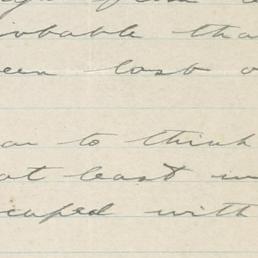 obable tha
een lost o
to think
at least
caped with